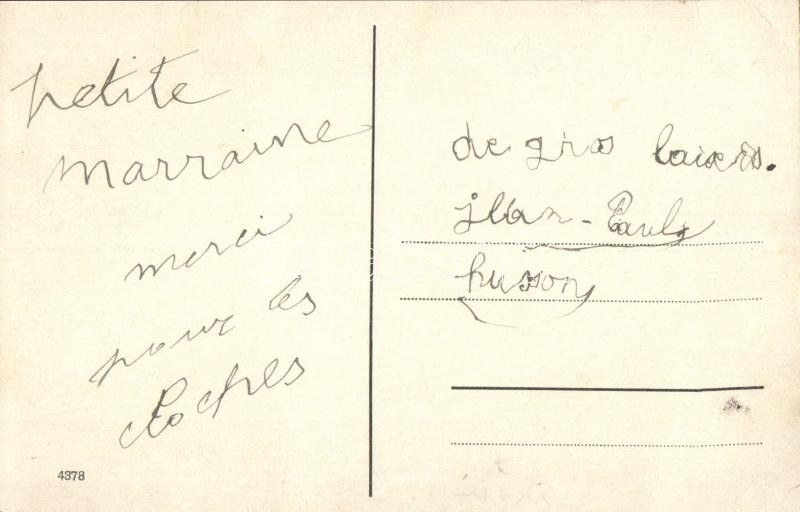 petite
marraine
merci
pour les
cloches
4378
de gros baisers.
jean-Paul
husson